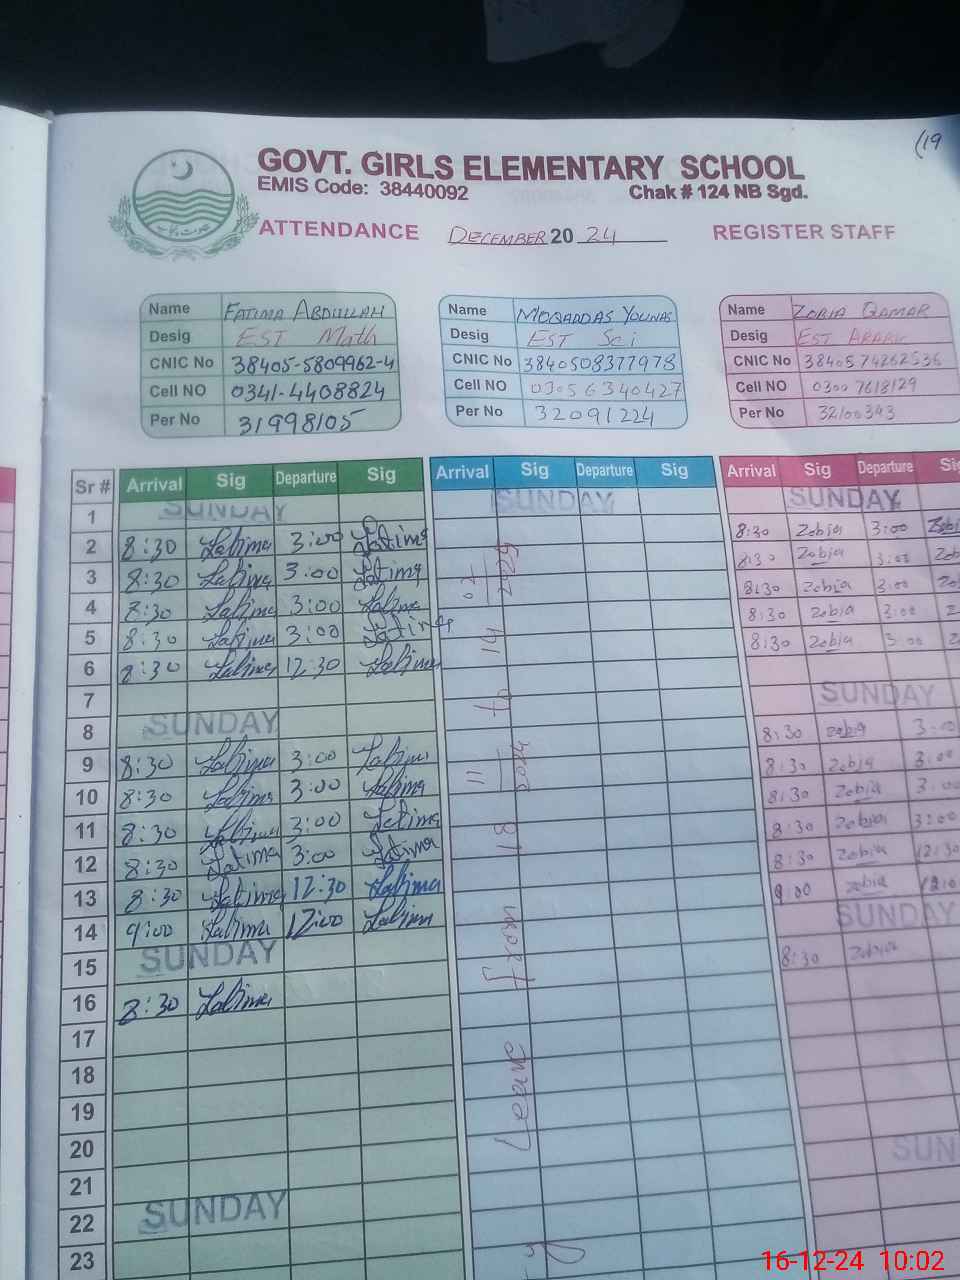 (19
GOVT. GIRLS ELEMENTARY SCHOOL
EMIS Code: 38440092 Chak # 124 NB Sgd.
ATTENDANCE DECEMBER 2024 REGISTER STAFF
Name FATIMA ABDULLAH Name MOQADDAS YOUNAS Name ZOBIA QAMAR
Desig EST Math Desig EST Sci Desig EST ARABIC
CNIC No 38405-5809962-4 CNIC No 3840508377978 CNIC No
Cell NO 0341-4408824 Cell NO 03056340427 Cell NO 03007618129
Per No 31998105 Per No 32091224 Per No 32100343
Sr # Arrival Sig Departure Sig Arrival Sig Departure Sig Arrival Sig Departure Sig
1 SUNDAY SUNDAY SUNDAY
2 8:30 Fatima 3:00 Fatima 8:30 Zobia 3:00 Zobia
3 8:30 Fatima 3:00 Fatima 8:30 Zobia 3:00 Zob
4 8:30 Fatima 3:00 Fatima 8:30 Zobia 3:00 Zo
5 8:30 Fatima 3:00 Fatima 8:30 Zobia 3:00 Z
6 8:30 Fatima 12:30 Fatima 8:30 Zobia 3:00 Zo
7 SUNDAY
8 SUNDAY 8:30 Zobia 3:00
9 8:30 Fatima 3:00 Fatima 8:30 Zobia 3:00
10 8:30 Fatima 3:00 Fatima 8:30 Zobia 3:00
11 8:30 Fatima 3:00 Fatima 8:30 Zobia 3:00
12 8:30 Fatima 3:00 Fatima 8:30 Zobia 12:30
13 8:30 Fatima 12:30 Fatima 9:00 Zobia 12:0
14 9:00 Fatima 12:00 Fatima SUNDAY
15 SUNDAY 8:30 Zobia
16 8:30 Fatima
17
18
19
20 SUN
21
22 SUNDAY
23
Leave from 18 11 2024 to 14 02 2025
16-12-24 10:02